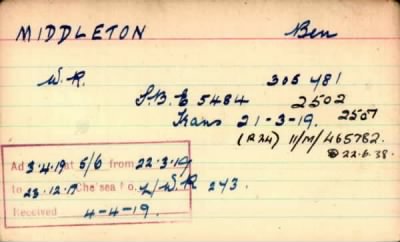 MIDDLETON Ben
W.R. 305481
S.B.E 5484 2502
Trans 21-3-19. 2507
(RZM) 11/M/465782.
22.6.38.
Ad 3.4.19 at 5/6 from 22.3.19
to 23.12.19 Chelsea No. L/W.R 243.
Received 4-4-19.